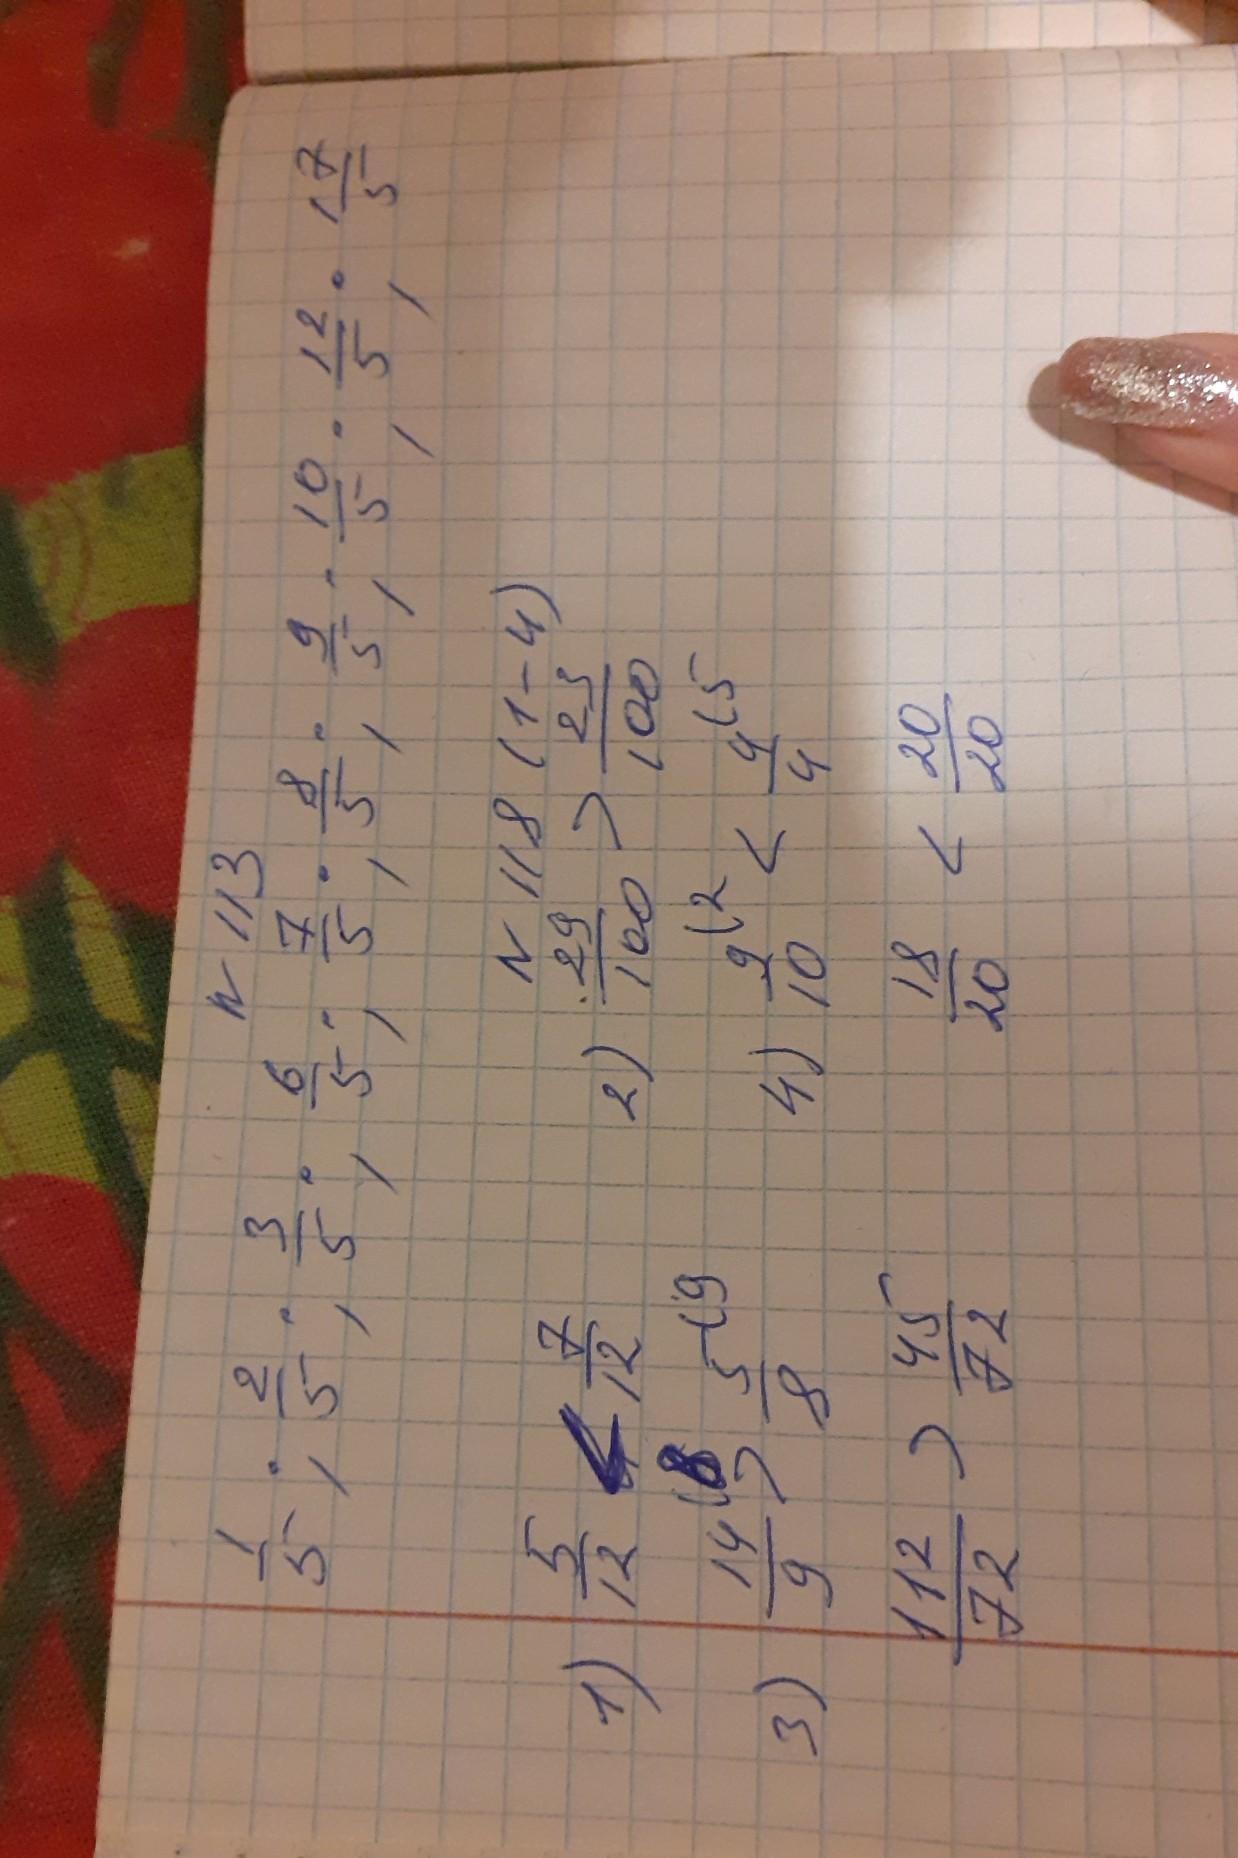 N 113
1/5; 2/5; 3/5; 6/5; 7/5; 8/5; 9/5; 10/5; 12/5; 17/5
N 118 (1-4)
1) 5/12 < 7/12 2) 29/100 > 23/100
3) 14/9 (8 > 5/8 (9 4) 9/10 (2 < 4/4 (5
112/72 > 45/72 18/20 < 20/20